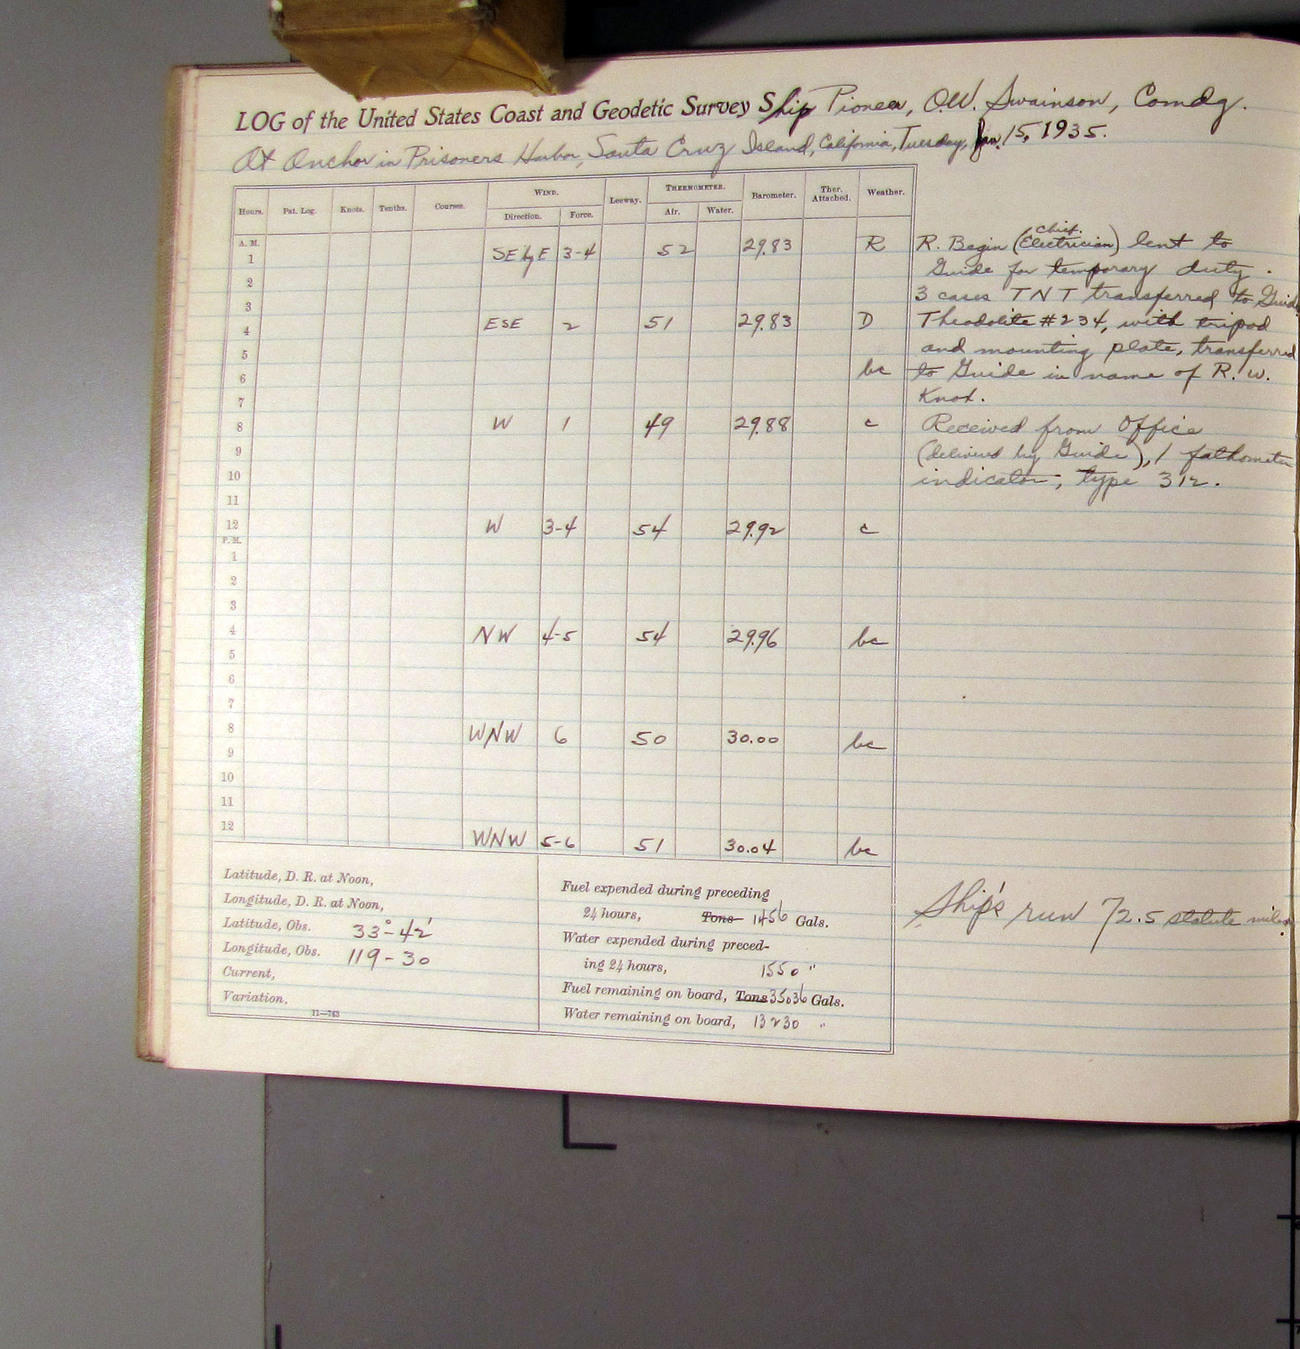 LOG of the United States Coast and Geodetic Survey Ship Pioneer, O.W. Swainson, Comdg.
At Anchor in Prisoners Harbor, Santa Cruz Island, California, Tuesday, Jan. 15, 1935.
Hours. Pat. Log. Knots. Tenths. Courses. WIND. Direction. Force. Leeway. THERMOMETER. Air. Water. Barometer. Ther. Attached. Weather.
A. M.
1 SE by E 3-4 52 29.83 R
2
3
4 ESE 2 51 29.83 D
5
6 bc
7
8 W 1 49 29.88 c
9
10
11
12 W 3-4 54 29.92 c
P. M.
1
2
3
4 NW 4-5 54 29.96 bc
5
6
7
8 WNW 6 50 30.00 bc
9
10
11
12 WNW 5-6 51 30.04 bc
chief
R. Begin (Electrician) lent to
Guide for temporary duty.
3 cases TNT transferred to Guide
Theodolite #234, with tripod
and mounting plate, transferred
to Guide in name of R. W.
Knox.
Received from Office
(delivered by Guide), 1 fathometer
indicator, type 312.
Ship's run 72.5 statute miles.
Latitude, D. R. at Noon,
Longitude, D. R. at Noon,
Latitude, Obs. 33°-42'
Longitude, Obs. 119-30
Current,
Variation,
11—763
Fuel expended during preceding
24 hours, Tons 1456 Gals.
Water expended during preced-
ing 24 hours, 1550 "
Fuel remaining on board, Tons 35036 Gals.
Water remaining on board, 13230 "